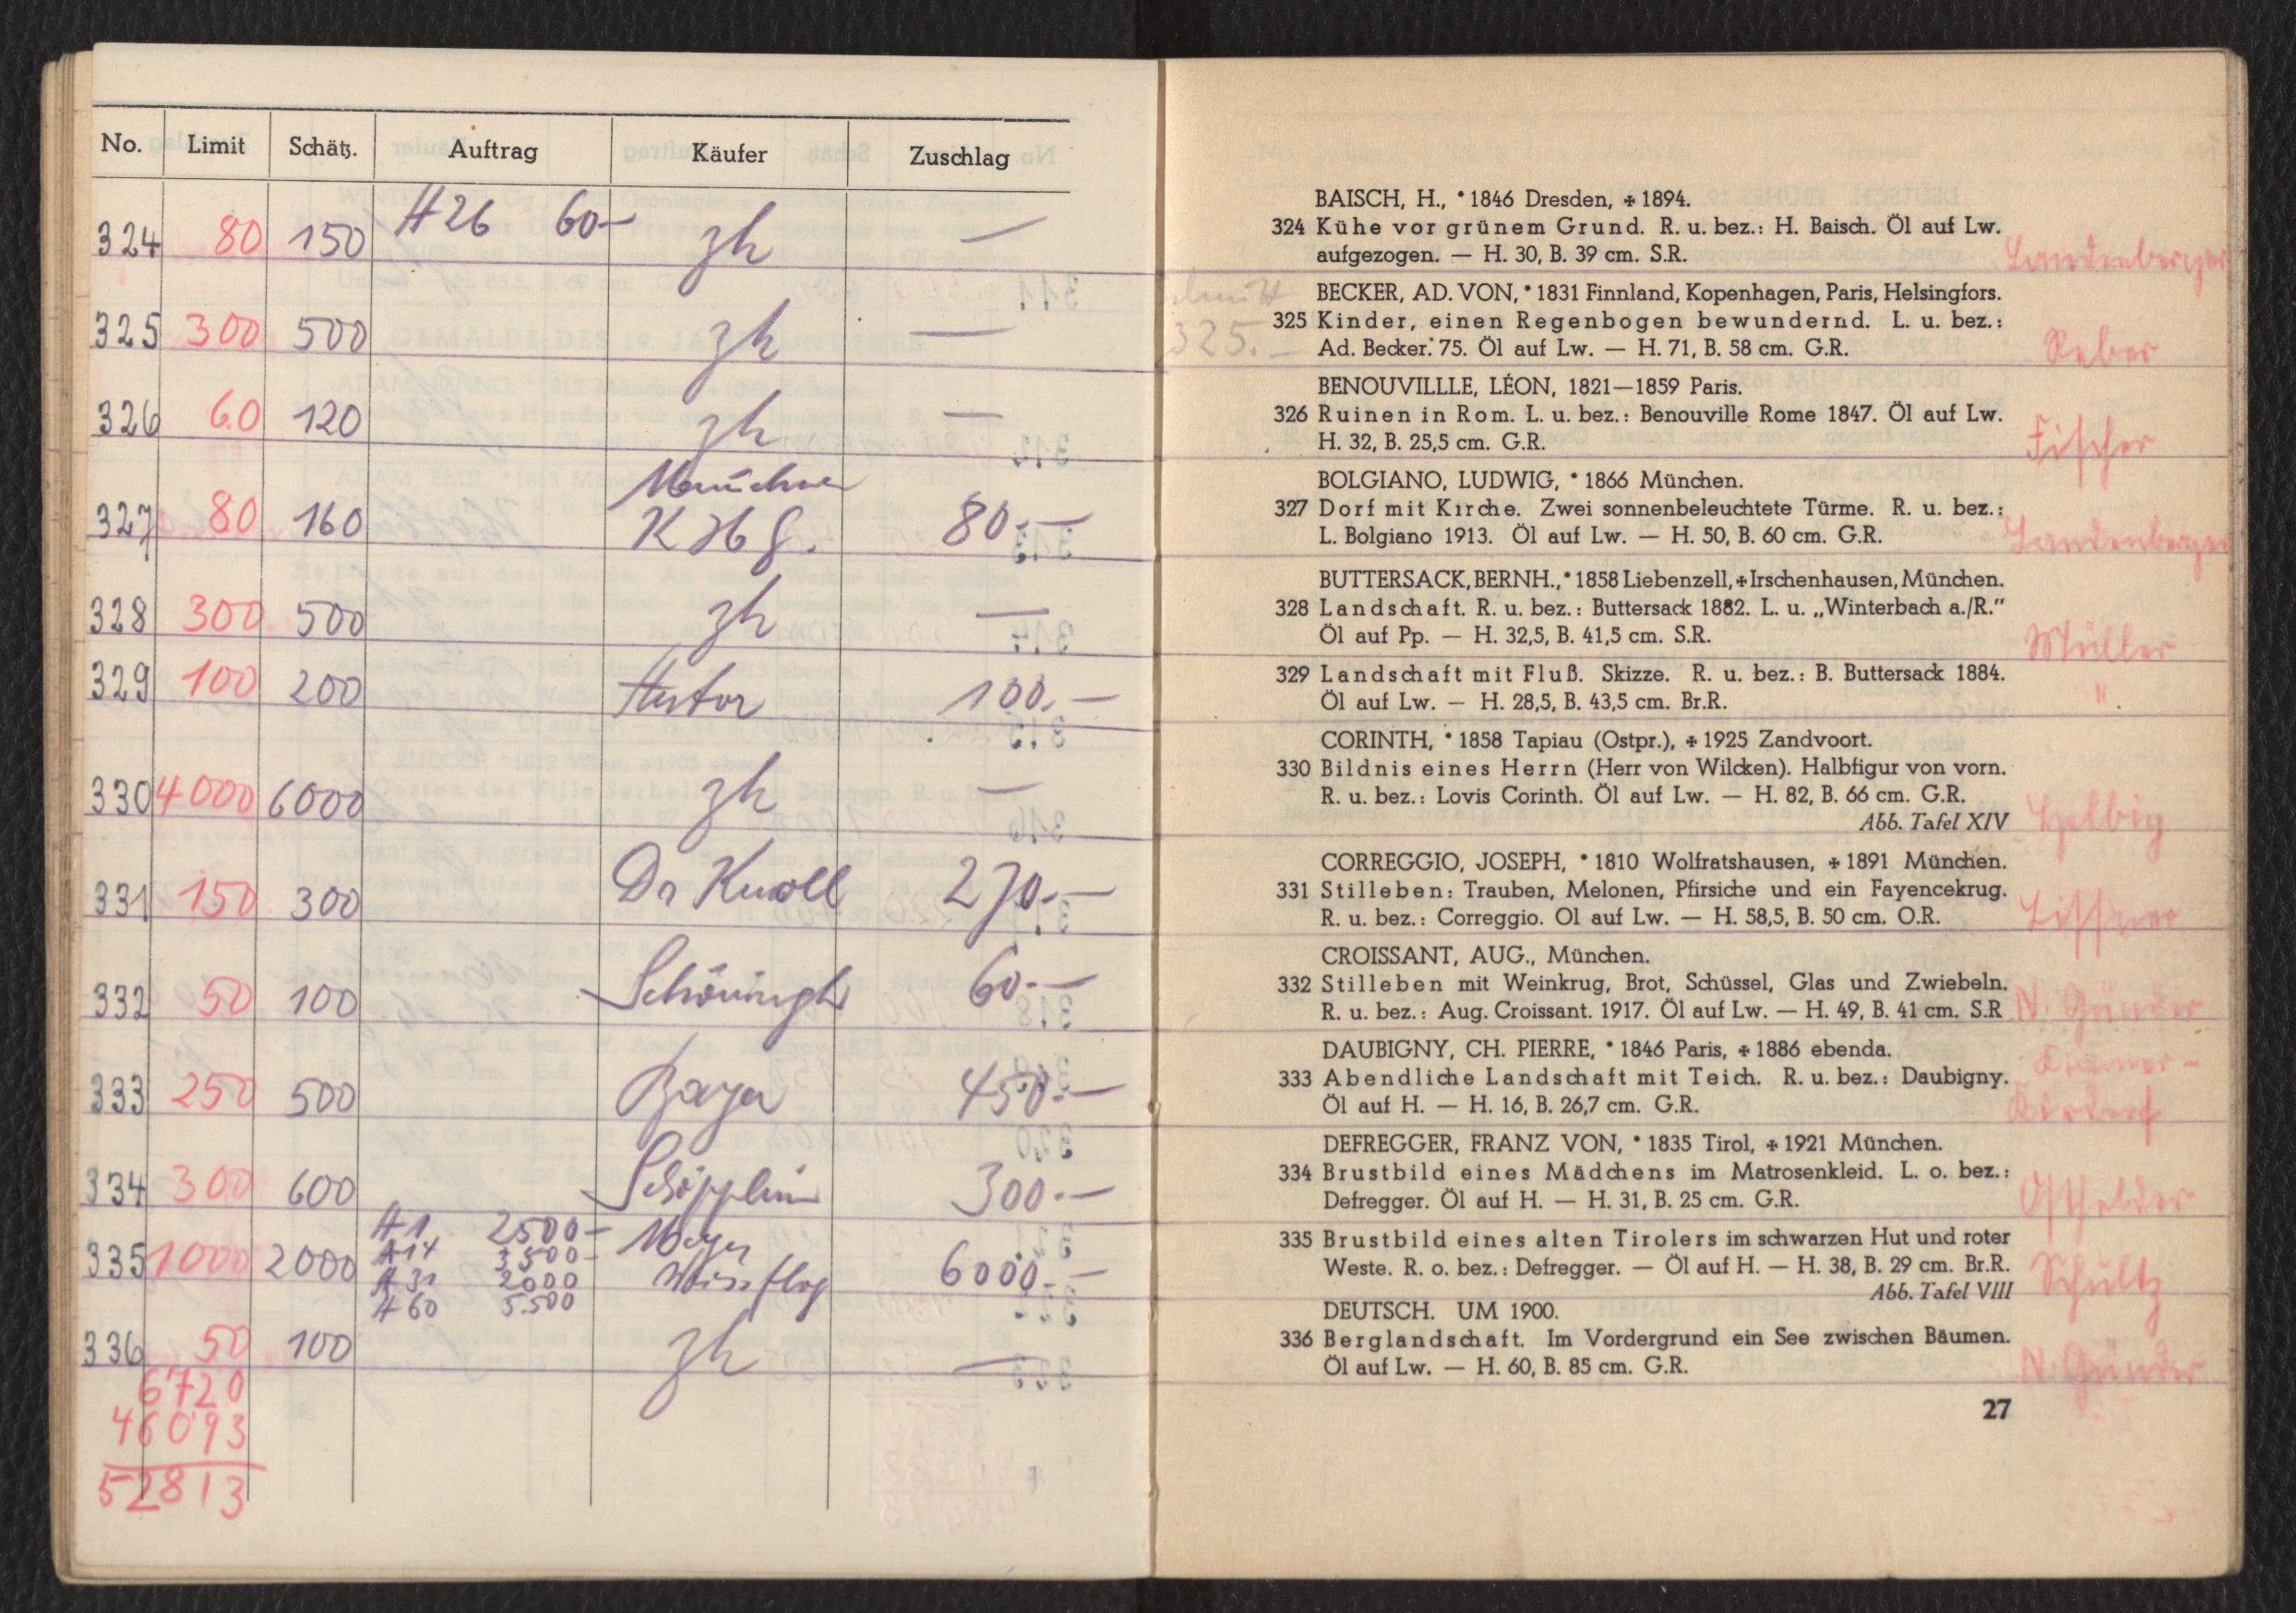 No. Limit Schätz. Auftrag Käufer Zuschlag
324 80 150 A 26 60- zh —
325 300 500 zh —
326 60 120 zh —
327 80 160 K H b g. 80.—
328 300 500 zh —
329 100 200 100.—
330 4000 6000 zh —
331 150 300 Dr Knoll 270.—
332 50 100 Schöningh 60.—
333 250 500 450.—
334 300 600 Schöpplein 300.—
335 1000 2000 Meyer 6000.—
A 1 2500-
A 14 3500-
A 31 2000 Weissflog
A 60 5.500
336 50 100 zh —
6720
46093
52813
BAISCH, H., *1846 Dresden, ✚1894.
324 Kühe vor grünem Grund. R. u. bez.: H. Baisch. Öl auf Lw.
aufgezogen. — H. 30, B. 39 cm. S.R. Landenberger
BECKER, AD. VON, *1831 Finnland, Kopenhagen, Paris, Helsingfors.
325 Kinder, einen Regenbogen bewundernd. L. u. bez.:
325.— Ad. Becker. 75. Öl auf Lw. — H. 71, B. 58 cm. G.R. Reber
BENOUVILLLE, LÉON, 1821—1859 Paris.
326 Ruinen in Rom. L. u. bez.: Benouville Rome 1847. Öl auf Lw.
H. 32, B. 25,5 cm. G.R. Fischer
BOLGIANO, LUDWIG, *1866 München.
327 Dorf mit Kirche. Zwei sonnenbeleuchtete Türme. R. u. bez.:
L. Bolgiano 1913. Öl auf Lw. — H. 50, B. 60 cm. G.R. Landenberger
BUTTERSACK, BERNH., *1858 Liebenzell, ✚Irschenhausen, München.
328 Landschaft. R. u. bez.: Buttersack 1882. L. u. „Winterbach a./R."
Öl auf Pp. — H. 32,5, B. 41,5 cm. S.R. Müller
329 Landschaft mit Fluß. Skizze. R. u. bez.: B. Buttersack 1884.
Öl auf Lw. — H. 28,5, B. 43,5 cm. Br.R. "
CORINTH, *1858 Tapiau (Ostpr.), ✚1925 Zandvoort.
330 Bildnis eines Herrn (Herr von Wilcken). Halbfigur von vorn.
R. u. bez.: Lovis Corinth. Öl auf Lw. — H. 82, B. 66 cm. G.R.
Abb. Tafel XIV Helbig
CORREGGIO, JOSEPH, *1810 Wolfratshausen, ✚1891 München.
331 Stilleben: Trauben, Melonen, Pfirsiche und ein Fayencekrug.
R. u. bez.: Correggio. Ol auf Lw. — H. 58,5, B. 50 cm. O.R. Lissner
CROISSANT, AUG., München.
332 Stilleben mit Weinkrug, Brot, Schüssel, Glas und Zwiebeln.
R. u. bez.: Aug. Croissant. 1917. Öl auf Lw. — H. 49, B. 41 cm. S.R N. Günder
DAUBIGNY, CH. PIERRE, *1846 Paris, ✚1886 ebenda.
333 Abendliche Landschaft mit Teich. R. u. bez.: Daubigny.
Öl auf H. — H. 16, B. 26,7 cm. G.R.
DEFREGGER, FRANZ VON, *1835 Tirol, ✚1921 München.
334 Brustbild eines Mädchens im Matrosenkleid. L. o. bez.:
Defregger. Öl auf H. — H. 31, B. 25 cm. G.R. Osthelder
335 Brustbild eines alten Tirolers im schwarzen Hut und roter
Weste. R. o. bez.: Defregger. — Öl auf H. — H. 38, B. 29 cm. Br.R. Schultz
Abb. Tafel VIII
DEUTSCH. UM 1900.
336 Berglandschaft. Im Vordergrund ein See zwischen Bäumen.
Öl auf Lw. — H. 60, B. 85 cm. G.R. N. Günder
27